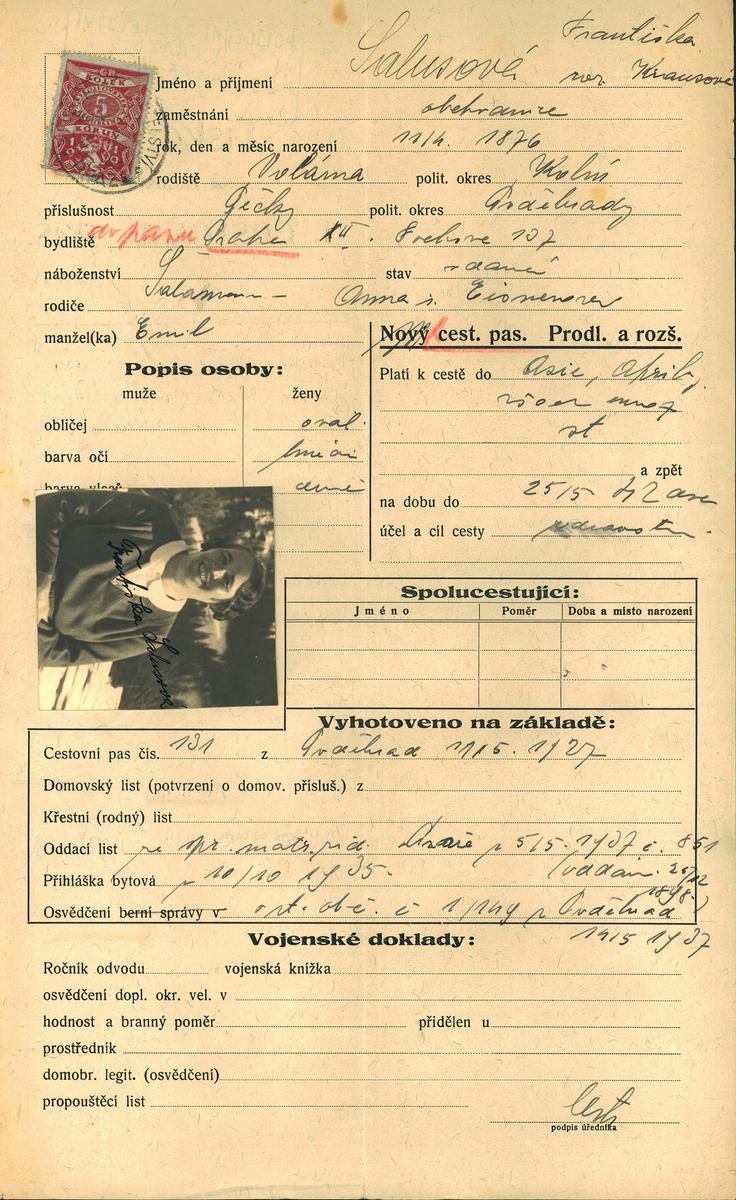 Františka
Jméno a příjmení Salusová roz. Krausová
zaměstnání obchodnice
rok, den a měsíc narození 11/4. 1876
rodiště Volárna polit. okres Kolín
příslušnost Pečky polit. okres Poděbrady
bydliště do pasu Praha XII. Fochova 137
náboženství stav vdaná
rodiče Salamon - Anna r.
manžel(ka) Emil
Nový cest. pas. Prodl. a rozš.
Popis osoby:
muže ženy
Platí k cestě do Asie, Afriky,
všech evrop.
st
obličej oval.
barva očí
barva vlasů
a zpět
na dobu do 25/5 42
účel a cíl cesty
ČR
KOLEK
5
KORUN
Františka Salusová
Spolucestující:
Jméno Poměr Doba a místo narození
Vyhotoveno na základě:
Cestovní pas čís. 131 z Poděbrad 11/5. 1927
Domovský list (potvrzení o domov. přísluš.) z
Křestní (rodný) list
Oddací list matr. 5/5. 1937 č. 851
Přihláška bytová z 10/10 1935. (oddán. 25/12
1898.)
Osvědčení berní správy v č. 1/149 z Poděbrad
19/5 1937
Vojenské doklady:
Ročník odvodu vojenská knížka
osvědčení dopl. okr. vel. v
hodnost a branný poměr přidělen u
prostředník
domobr. legit. (osvědčení)
propouštěcí list
podpis úředníka